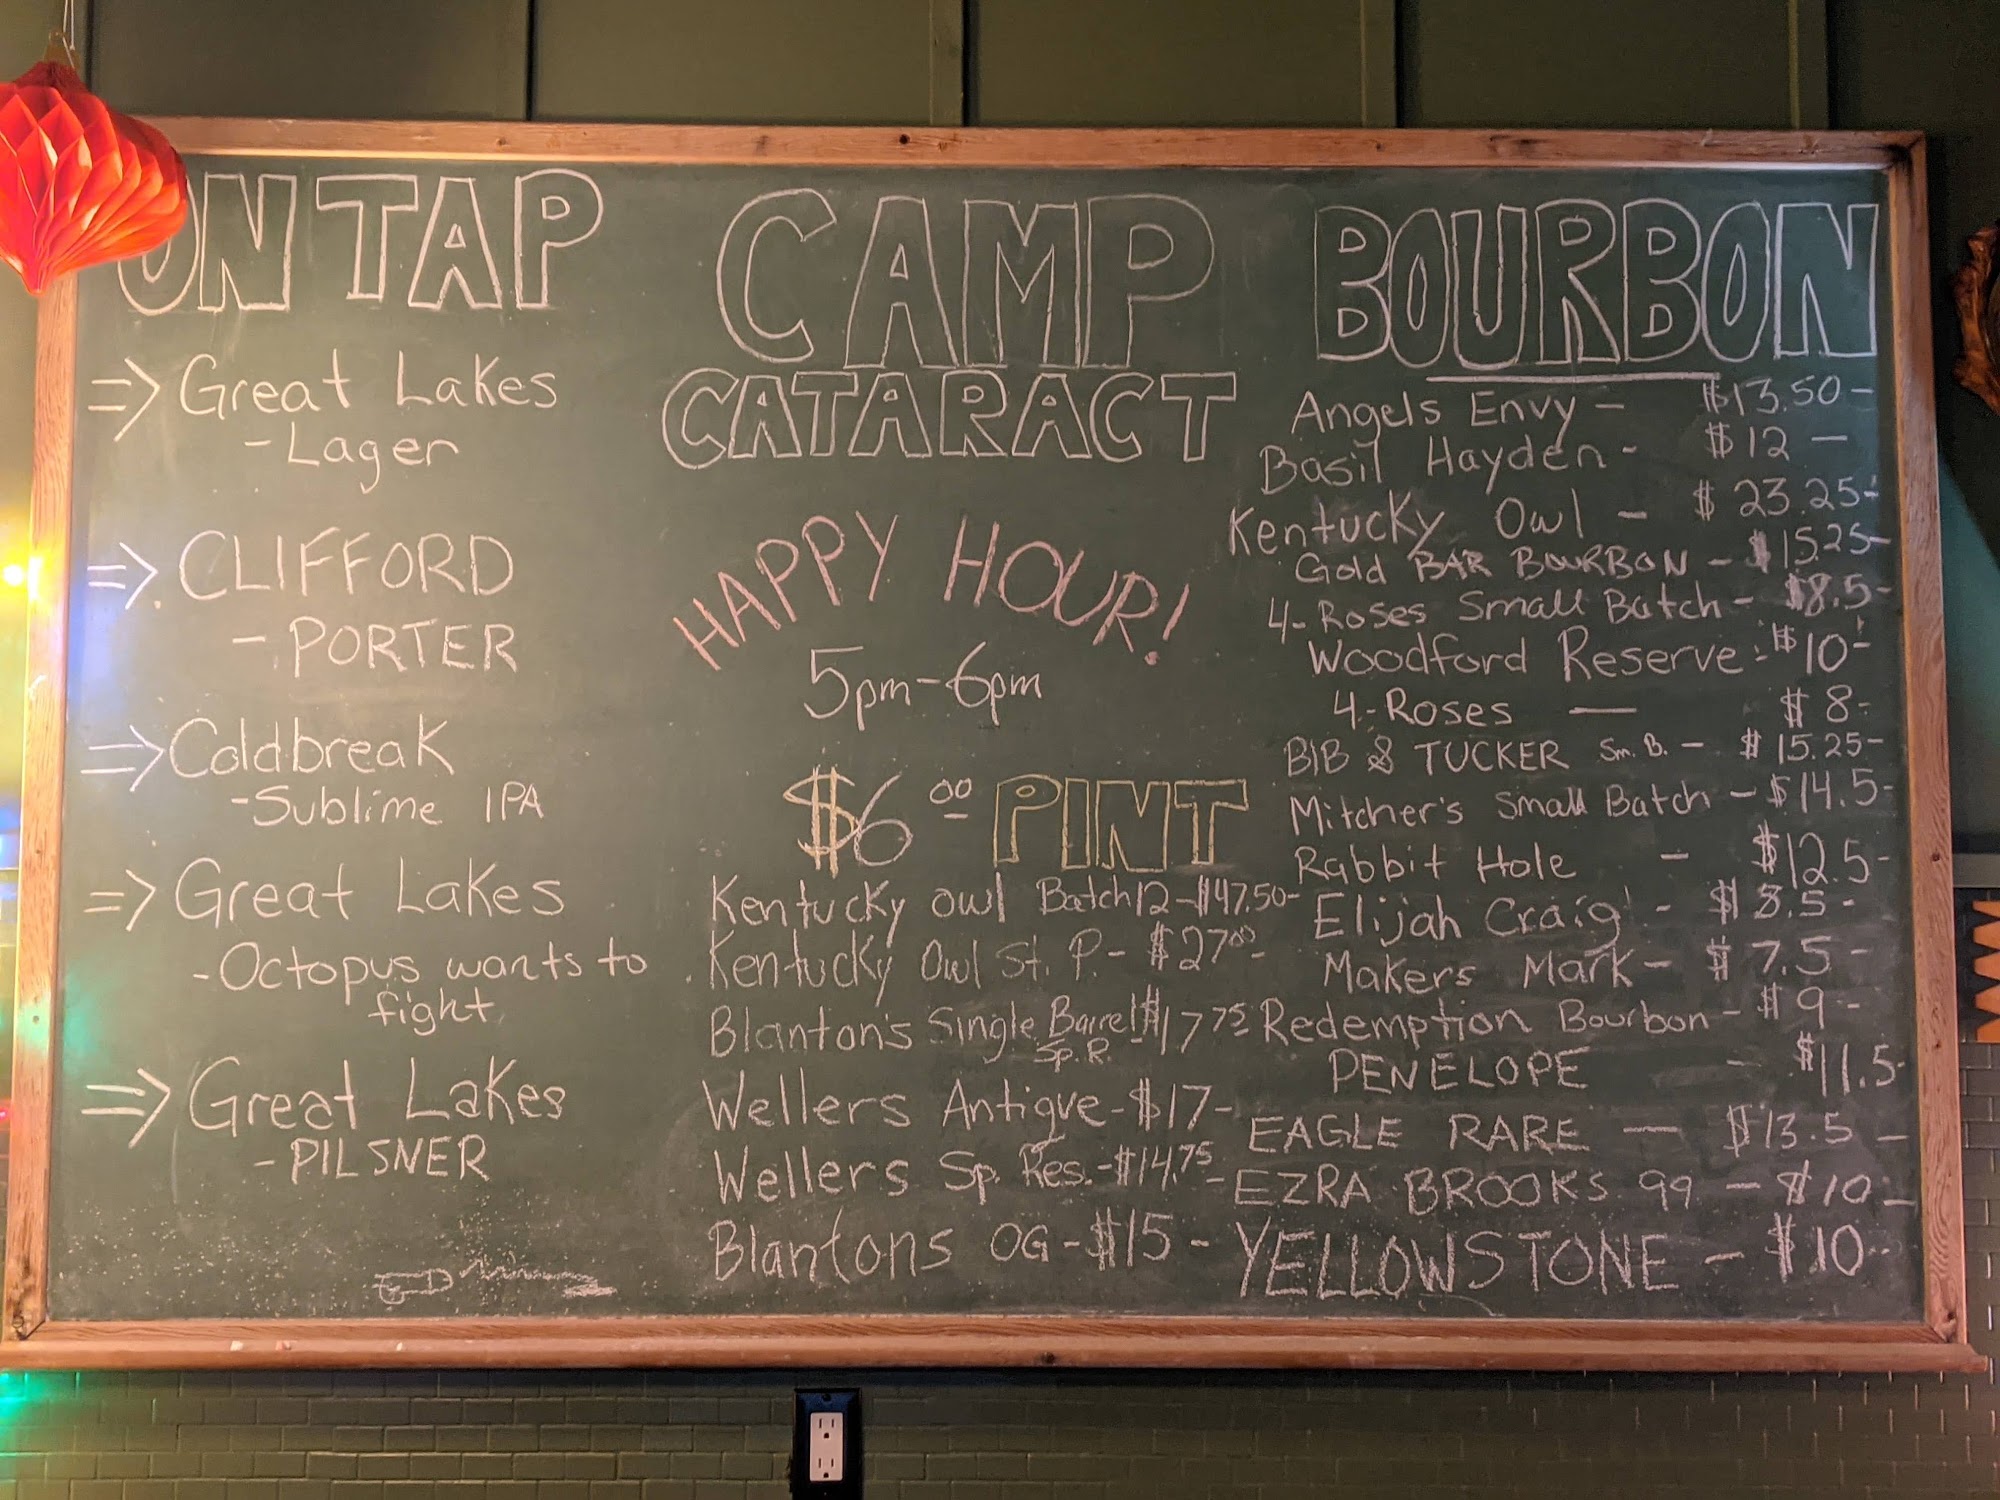 ON TAP
⇒ Great Lakes
- Lager
⇒ CLIFFORD
- PORTER
⇒ Coldbreak
- Sublime IPA
⇒ Great Lakes
- Octopus wants to
fight
⇒ Great Lakes
- PILSNER
CAMP
CATARACT
HAPPY HOUR!
5pm-6pm
$6.00 PINT
Kentucky owl Batch 12 - $47.50-
Kentucky Owl St. P. - $27.00-
Blanton's Single Barrel $17.75
Sp. R.
Wellers Antique - $17-
Wellers Sp. Res. - $14.75-
Blantons OG - $15 -
BOURBON
Angels Envy - $13.50-
Basil Hayden - $12 -
Kentucky Owl - $23.25-
Gold BAR BOURBON - $15.25-
4-Roses Small Batch - $8.5-
Woodford Reserve - $10-
4-Roses — $8-
BIB & TUCKER Sm. B. - $15.25-
Mitcher's Small Batch - $14.5-
Rabbit Hole - $12.5-
Elijah Craig - $8.5-
Makers Mark - $7.5-
Redemption Bourbon - $9-
PENELOPE - $11.5-
EAGLE RARE - $13.5 -
EZRA BROOKS 99 - $10 -
YELLOWSTONE - $10--